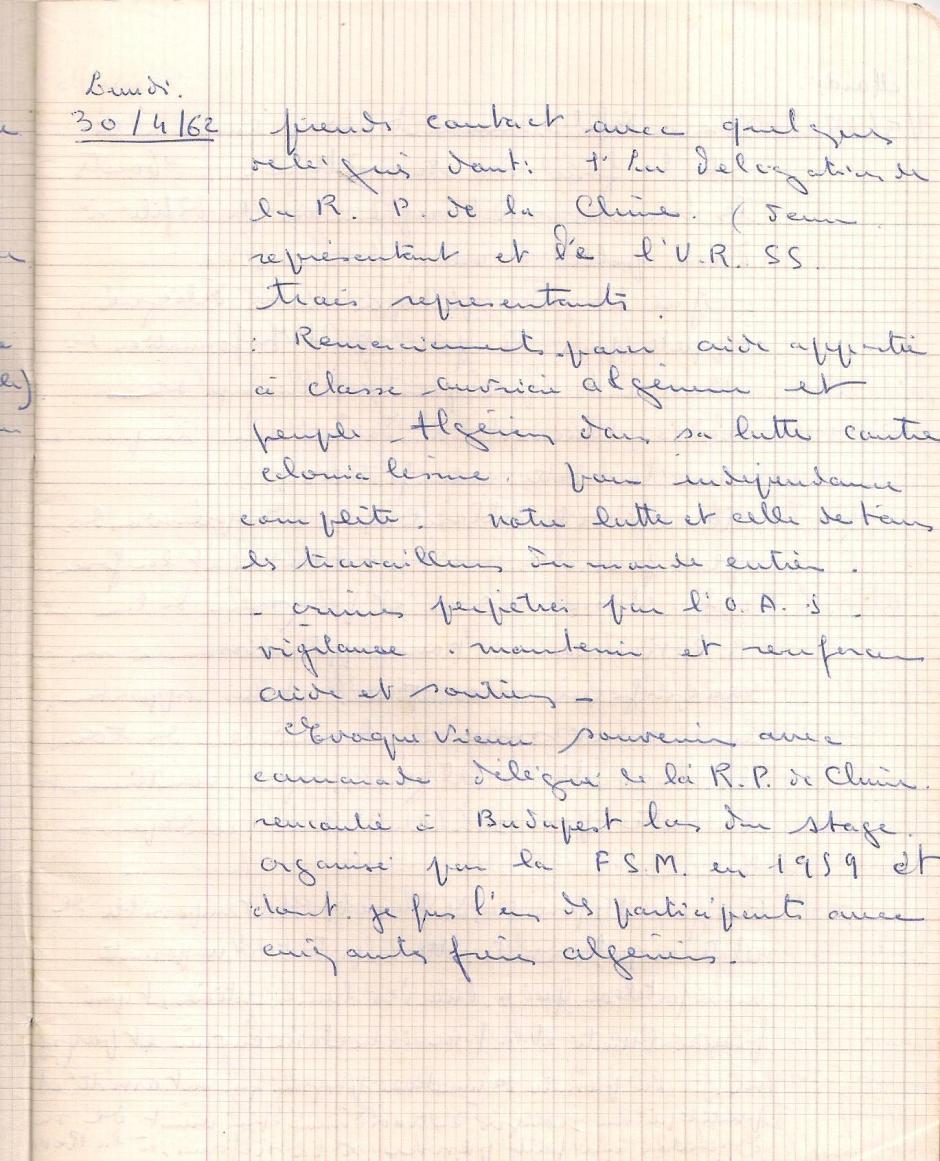 Lundi.
30/4/62 prends contact avec quelques
délégués dont: la délégation de
la R. P. de la Chine. (deux
représentant et de l'U.R.SS.
trois représentants.
: Remerciements pour aide apportée
à classe ouvrière algérienne et
peuple Algérien dans sa lutte contre
colonialisme. pour indépendance
complète. notre lutte et celle de tous
les travailleurs du monde entier.
- crimes perpétrés par l'O.A.S -
vigilance. maintenir et renforcer
aide et soutien -
Evoque vieux souvenirs avec
camarade délégué de la R.P. de Chine.
rencontré à Budapest lors du stage.
organisé par la F.S.M. en 1959 et
dont je fus l'un des participants avec
cinq autres frères algériens.